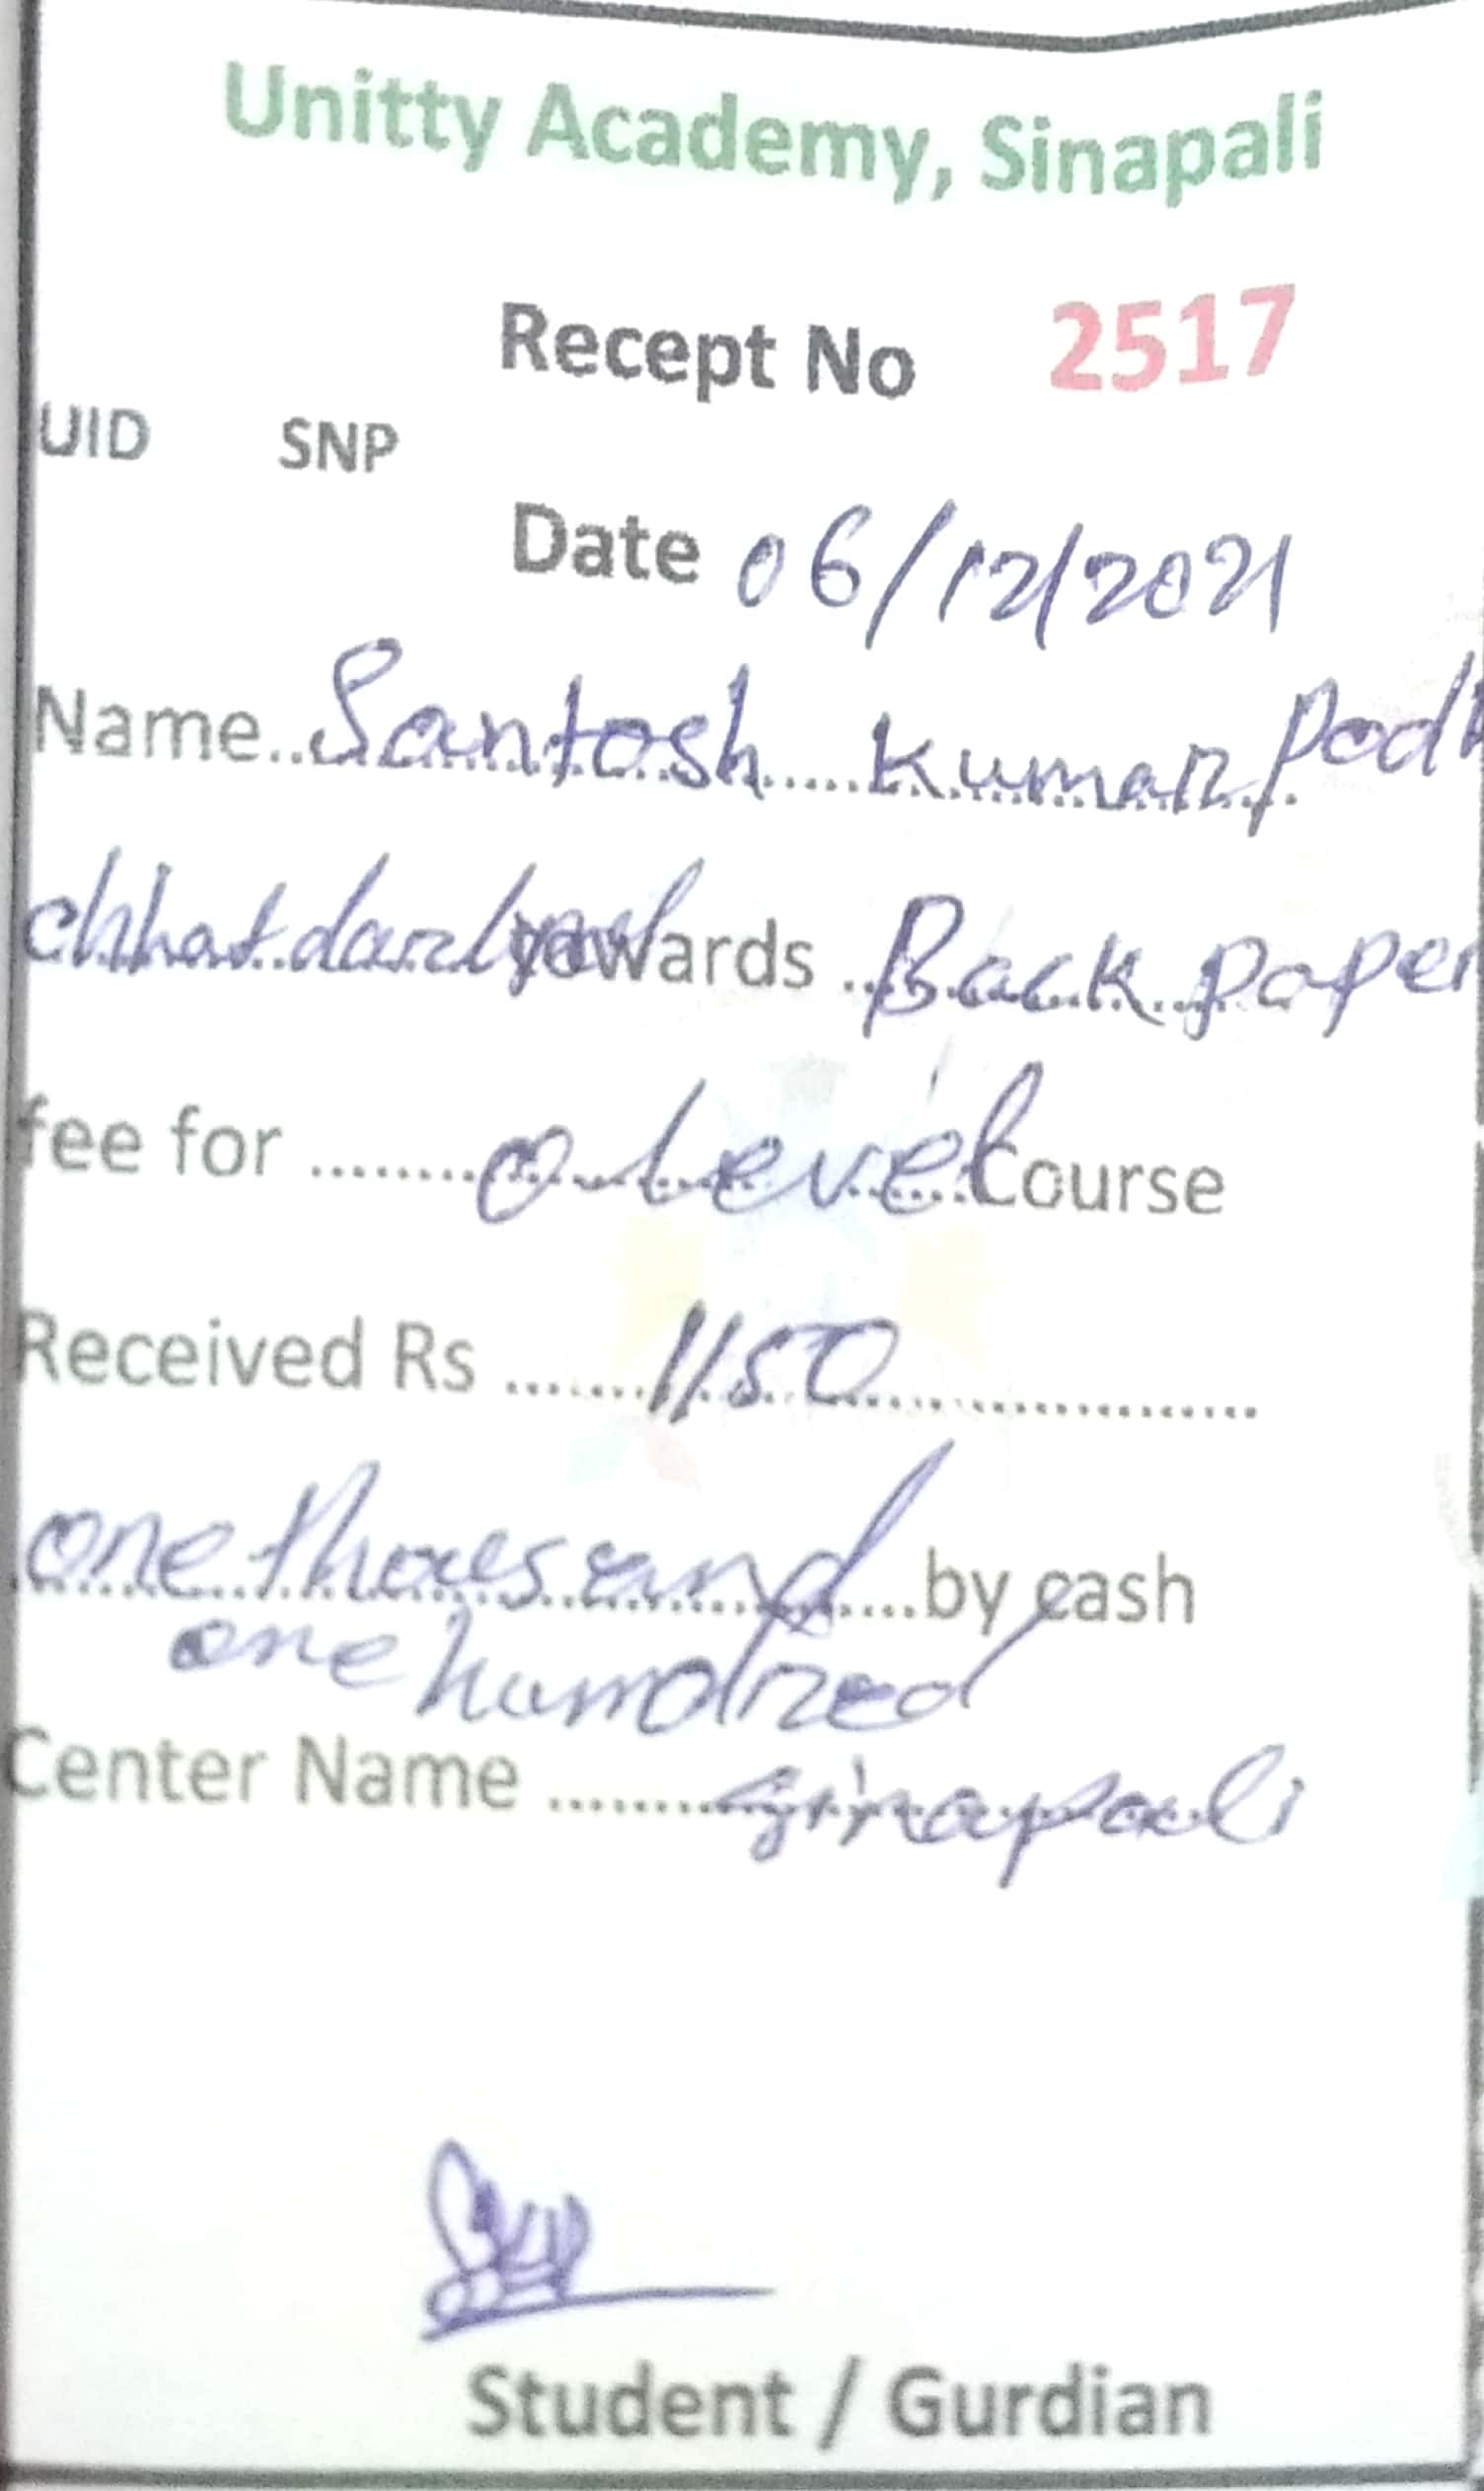 Unitty Academy, Sinapali
Recept No 2517
UID SNP
Date 06/12/2021
Name..Santosh Kumar Podh
towards Back paper
fee for ........ O Level Course
Received Rs ....... 1150
one thousand ....by cash
one hundred
Center Name ........ Sinapali
Student / Gurdian